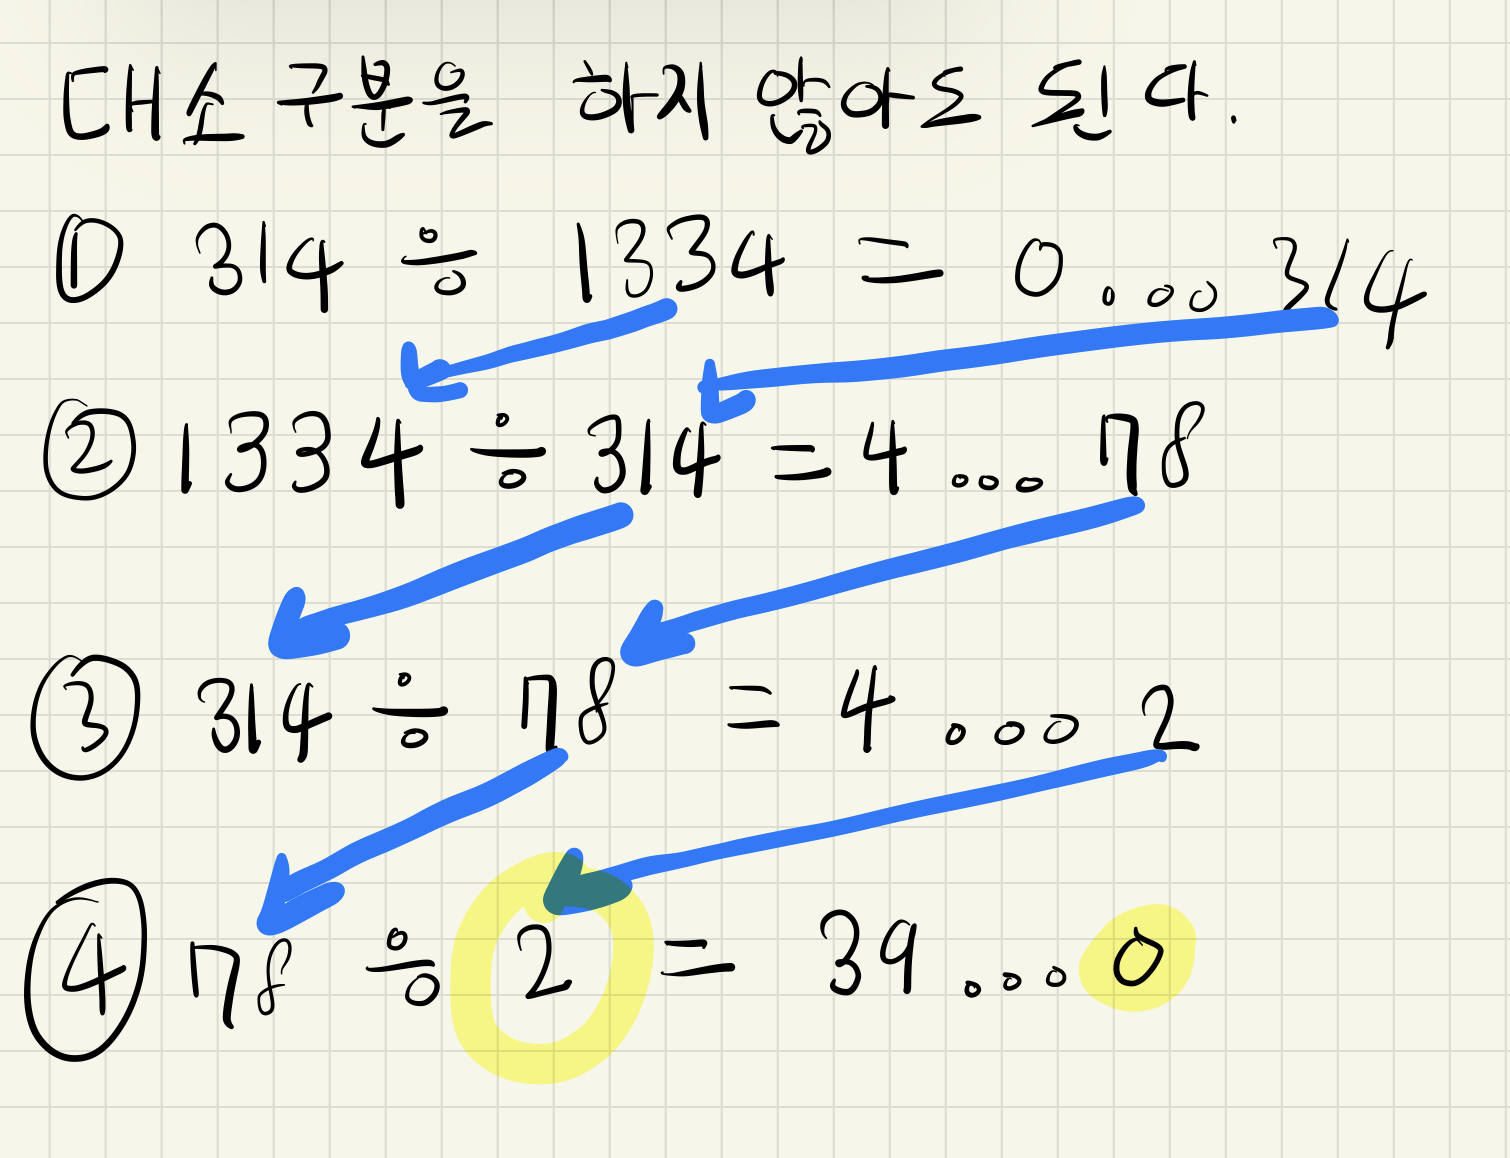 대소 구분을 하지 않아도 된다.
① 314 ÷ 1334 = 0...314
② 1334 ÷ 314 = 4...78
③ 314 ÷ 78 = 4...2
④ 78 ÷ 2 = 39...0